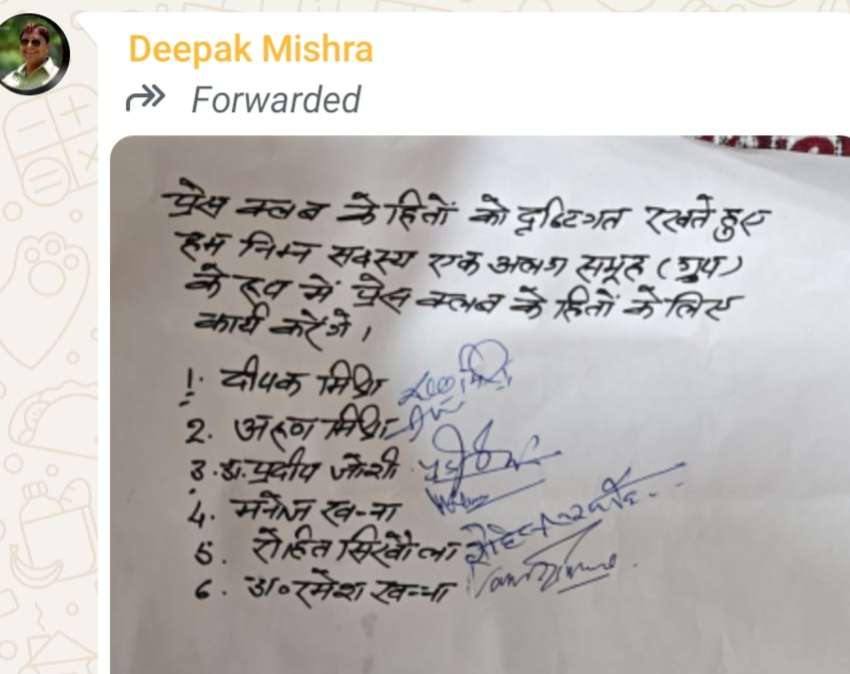 Deepak Mishra
Forwarded
प्रेस क्लब के हितों को दृष्टिगत रखते हुए
हम निम्न सदस्य एक अलग समूह (ग्रुप)
के रूप में प्रेस क्लब के हितों के लिए
कार्य करेंगे।
1. दीपक मिश्रा
2. अरुण मिश्रा
3. डा. प्रदीप जोशी
4. मनोज खन्ना
5. रोहित सिखौला
6. डा० रमेश खन्ना